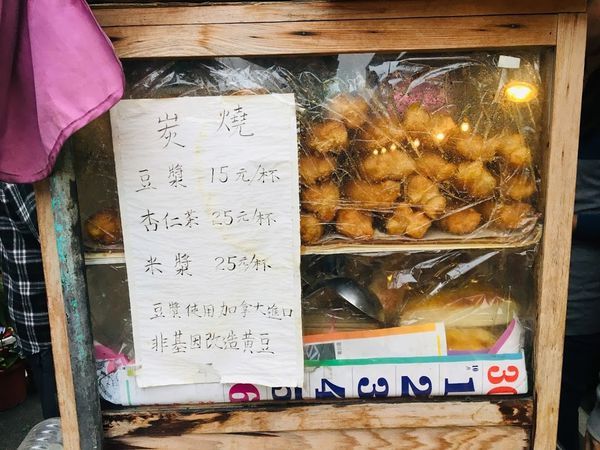 炭 燒
豆漿 15元/杯
杏仁茶 25元/杯
米漿 25元/杯
豆漿使用加拿大進口
非基因改造黃豆
6 5 4 3 2 1 30
10